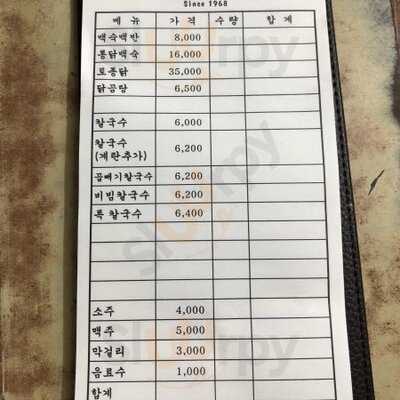 Since 1968
메뉴 가격 수량 합계
백숙백반 8,000
통닭백숙 16,000
토종닭 35,000
닭곰탕 6,500
칼국수 6,000
칼국수
(계란추가) 6,200
곱빼기칼국수 6,200
비빔칼국수 6,200
특칼국수 6,400
소주 4,000
맥주 5,000
막걸리 3,000
음료수 1,000
합계
slurrpy
slurrpy
slurrpy